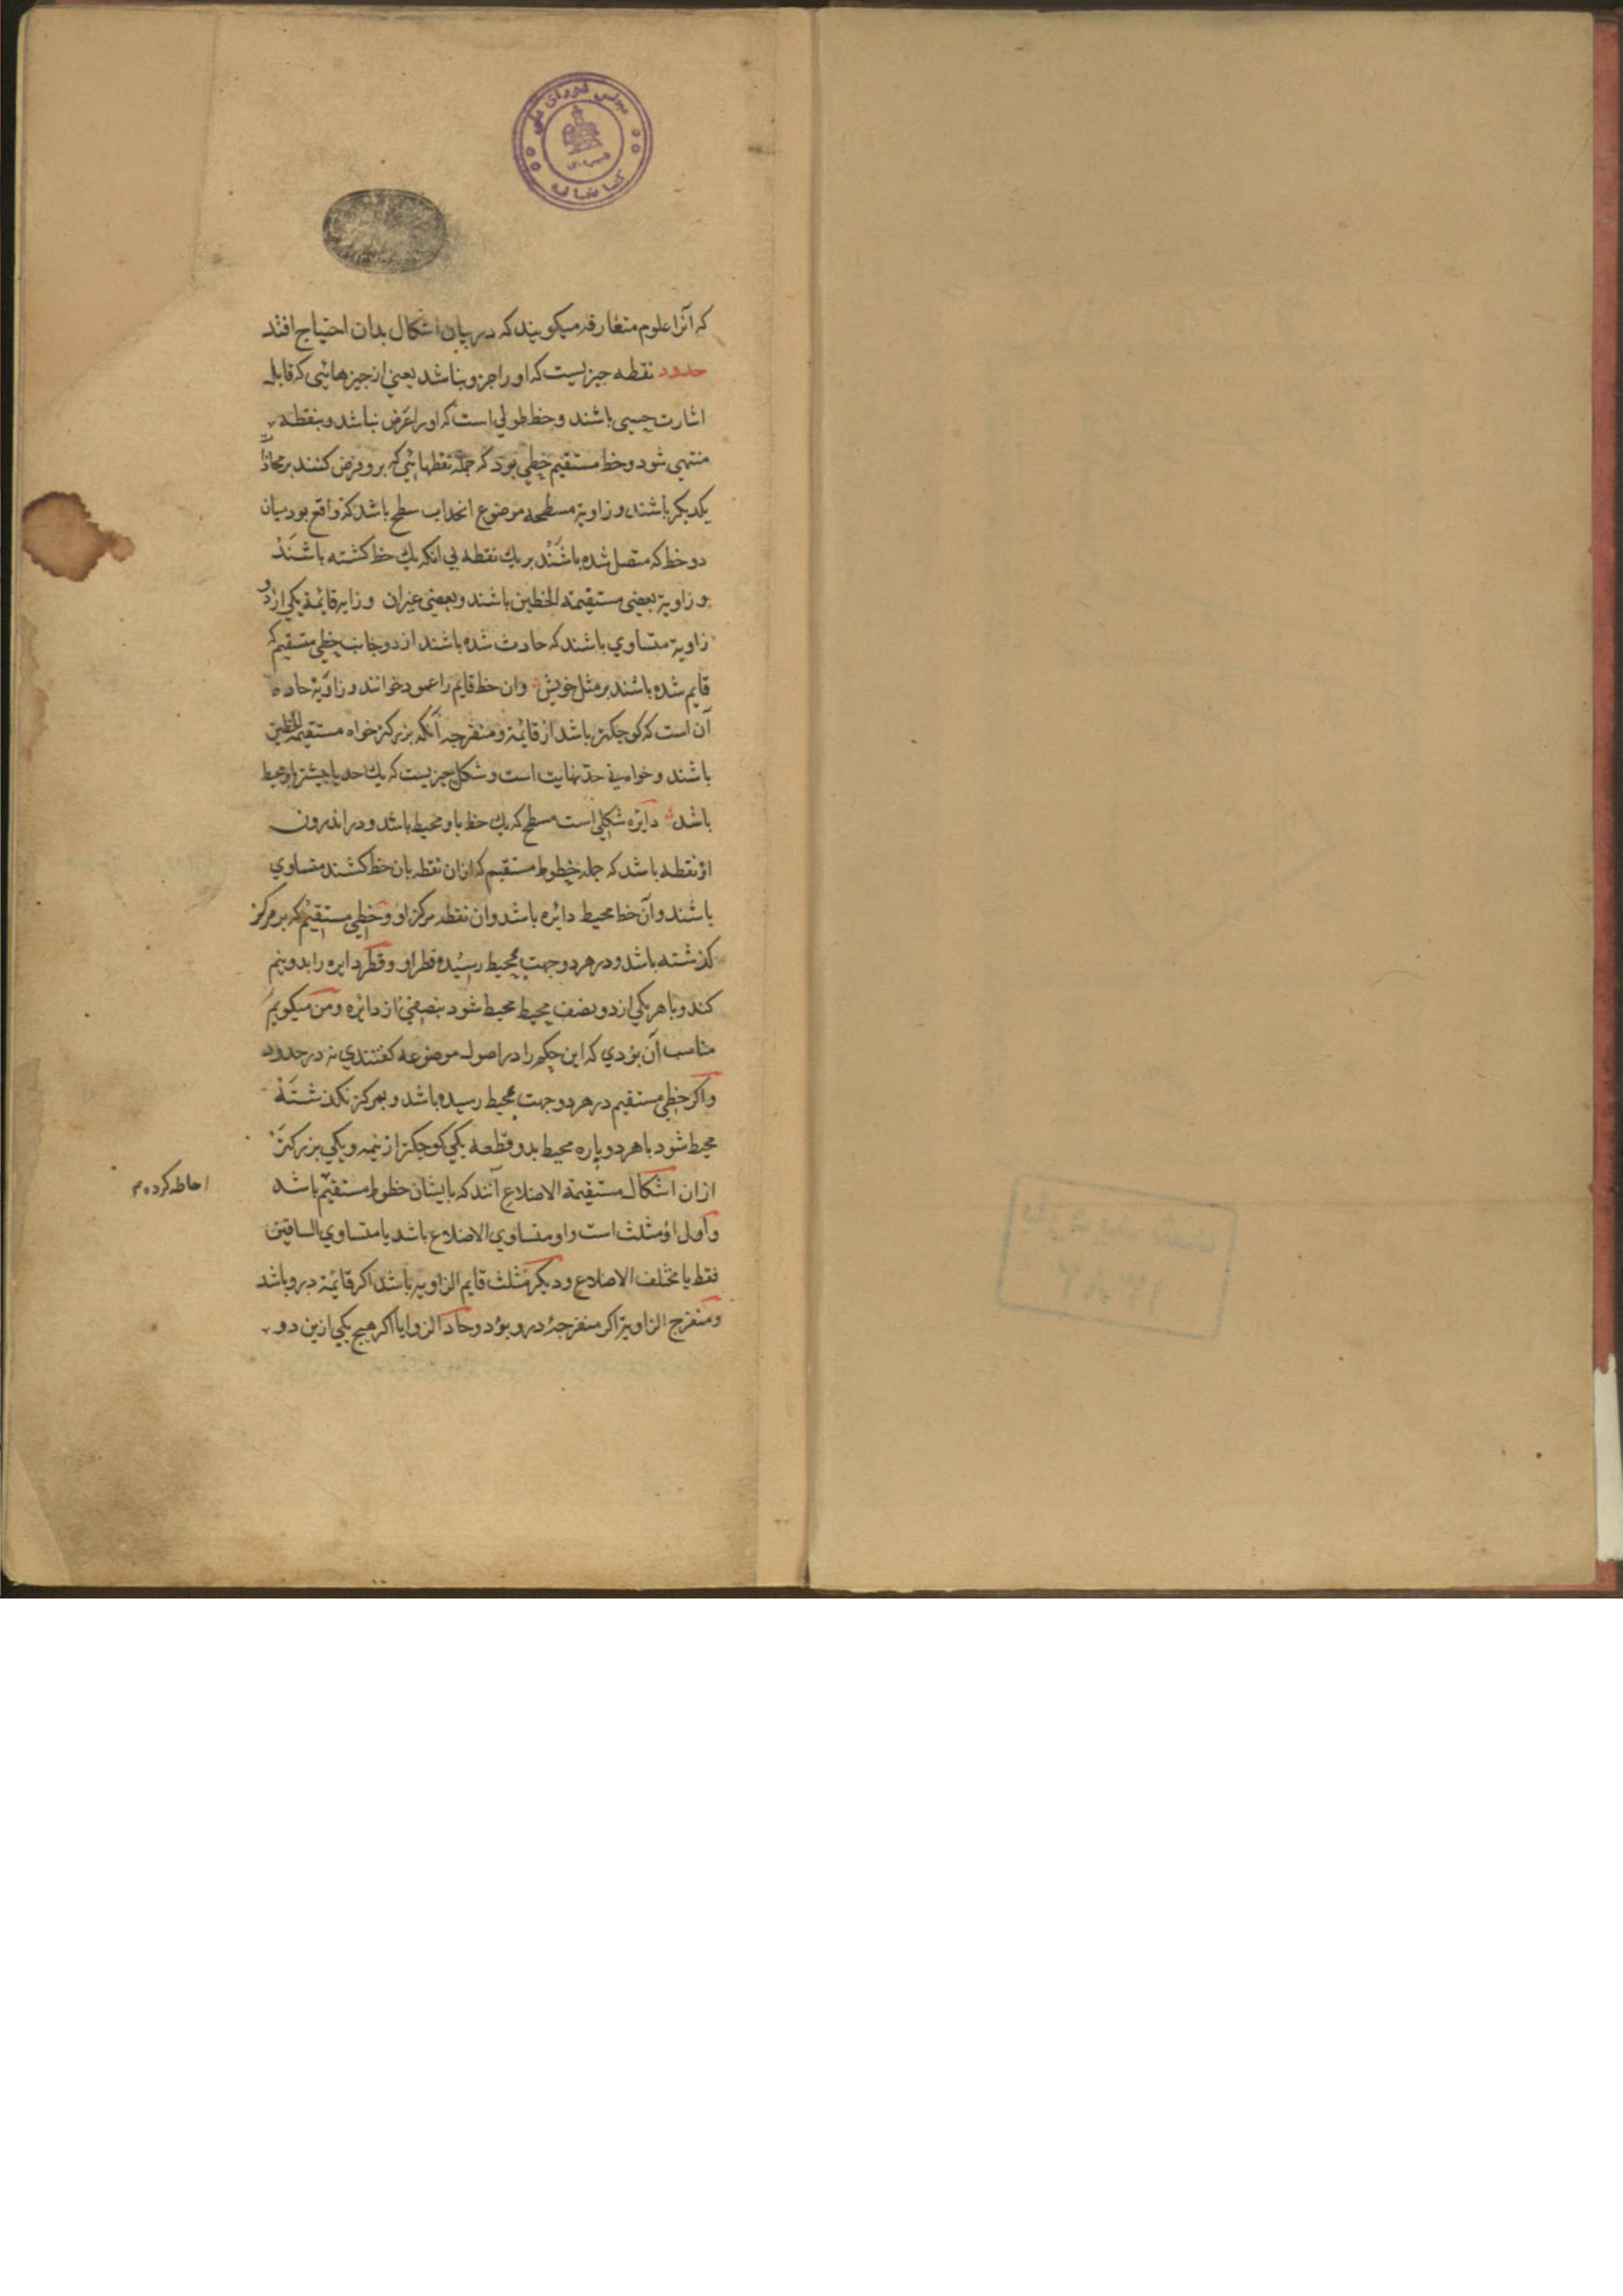 مجلس شورای ملی
کتابخانه
که آنرا علوم متعارفه میکویند که در بیان اشکال بدان احتیاج افتد
حدود نقطه جیزیست که او را جزو نباشد یعنی از جیزهائی که قابل
اشارت حسی باشند و خط طولی است که او را عرض نباشد و بنقطه
منتهی شود و خط مستقیم خطی بود که جمله نقطهائی که برو فرض کنند بر محاذات
یکدیکر باشند و زاویۀ مسطحه موضوع انحداب سطح باشد که واقع بود میان
دو خط که متصل شده باشند بر یك نقطه بی انکه یك خط کشته باشند
و زاویۀ بعضی مستقیمة الخطین باشند و بعضی غیر ان و زایه قائمة یکی از دو
زاویۀ متساوی باشند که حادث شده باشند از دو جانب خطی مستقیم که
قایم شده باشند بر مثل خویش وان خط قایم را عمود خوانند و زاویۀ حاده
آن است که کوجکتر باشد از قائمة و منفرجه آنکه بزرکتر خواه مستقیمة الخطین
باشند و خواه نی حد نهایت است و شکل جیزیست که یك حد یا بیشتر باو محیط
باشد دایره شکلی است مسطح که یك خط باو محیط باشد و در اندرون
او نقطه باشد که جمله خطوط مستقیم که ازان نقطه بان خط کشند متساوی
باشند و آن خط محیط دائره باشد وان نقطه مرکز او و خطی مستقیم که بر مرکز
کذشته باشد و در هر دو جهت بمحیط رسیده قطر او و قطر دایره را بدو نیم
کند و با هر یکی از دو نصف محیط محیط شود بنصفی از دائره و من میکویم
مناسب آن بودی که این حکم را در اصول موضوعه کفتندی نه در حدود
واکر خطی مستقیم در هر دو جهت بمحیط رسیده باشد و بمرکز نکذشته
محیط شود با هر دو پاره محیط بدو قطعه یکی کوجکتر از نیمه و یکی بزرکتر
ازان اشکال مستقیمة الاضلاع آنند که بایشان خطوط مستقیم باشد
احاطه کرده م
و اول او مثلث است واو متساوی الاضلاع باشد یا متساوی الساقین
فقط یا مختلف الاضلاع و دیکر مثلث قایم الزاویه باشد اکر قائمة درو باشد
و منفرج الزاویة اکر منفرجۀ درو بود و حاد الزوایا اکر هیج یکی ازین دو